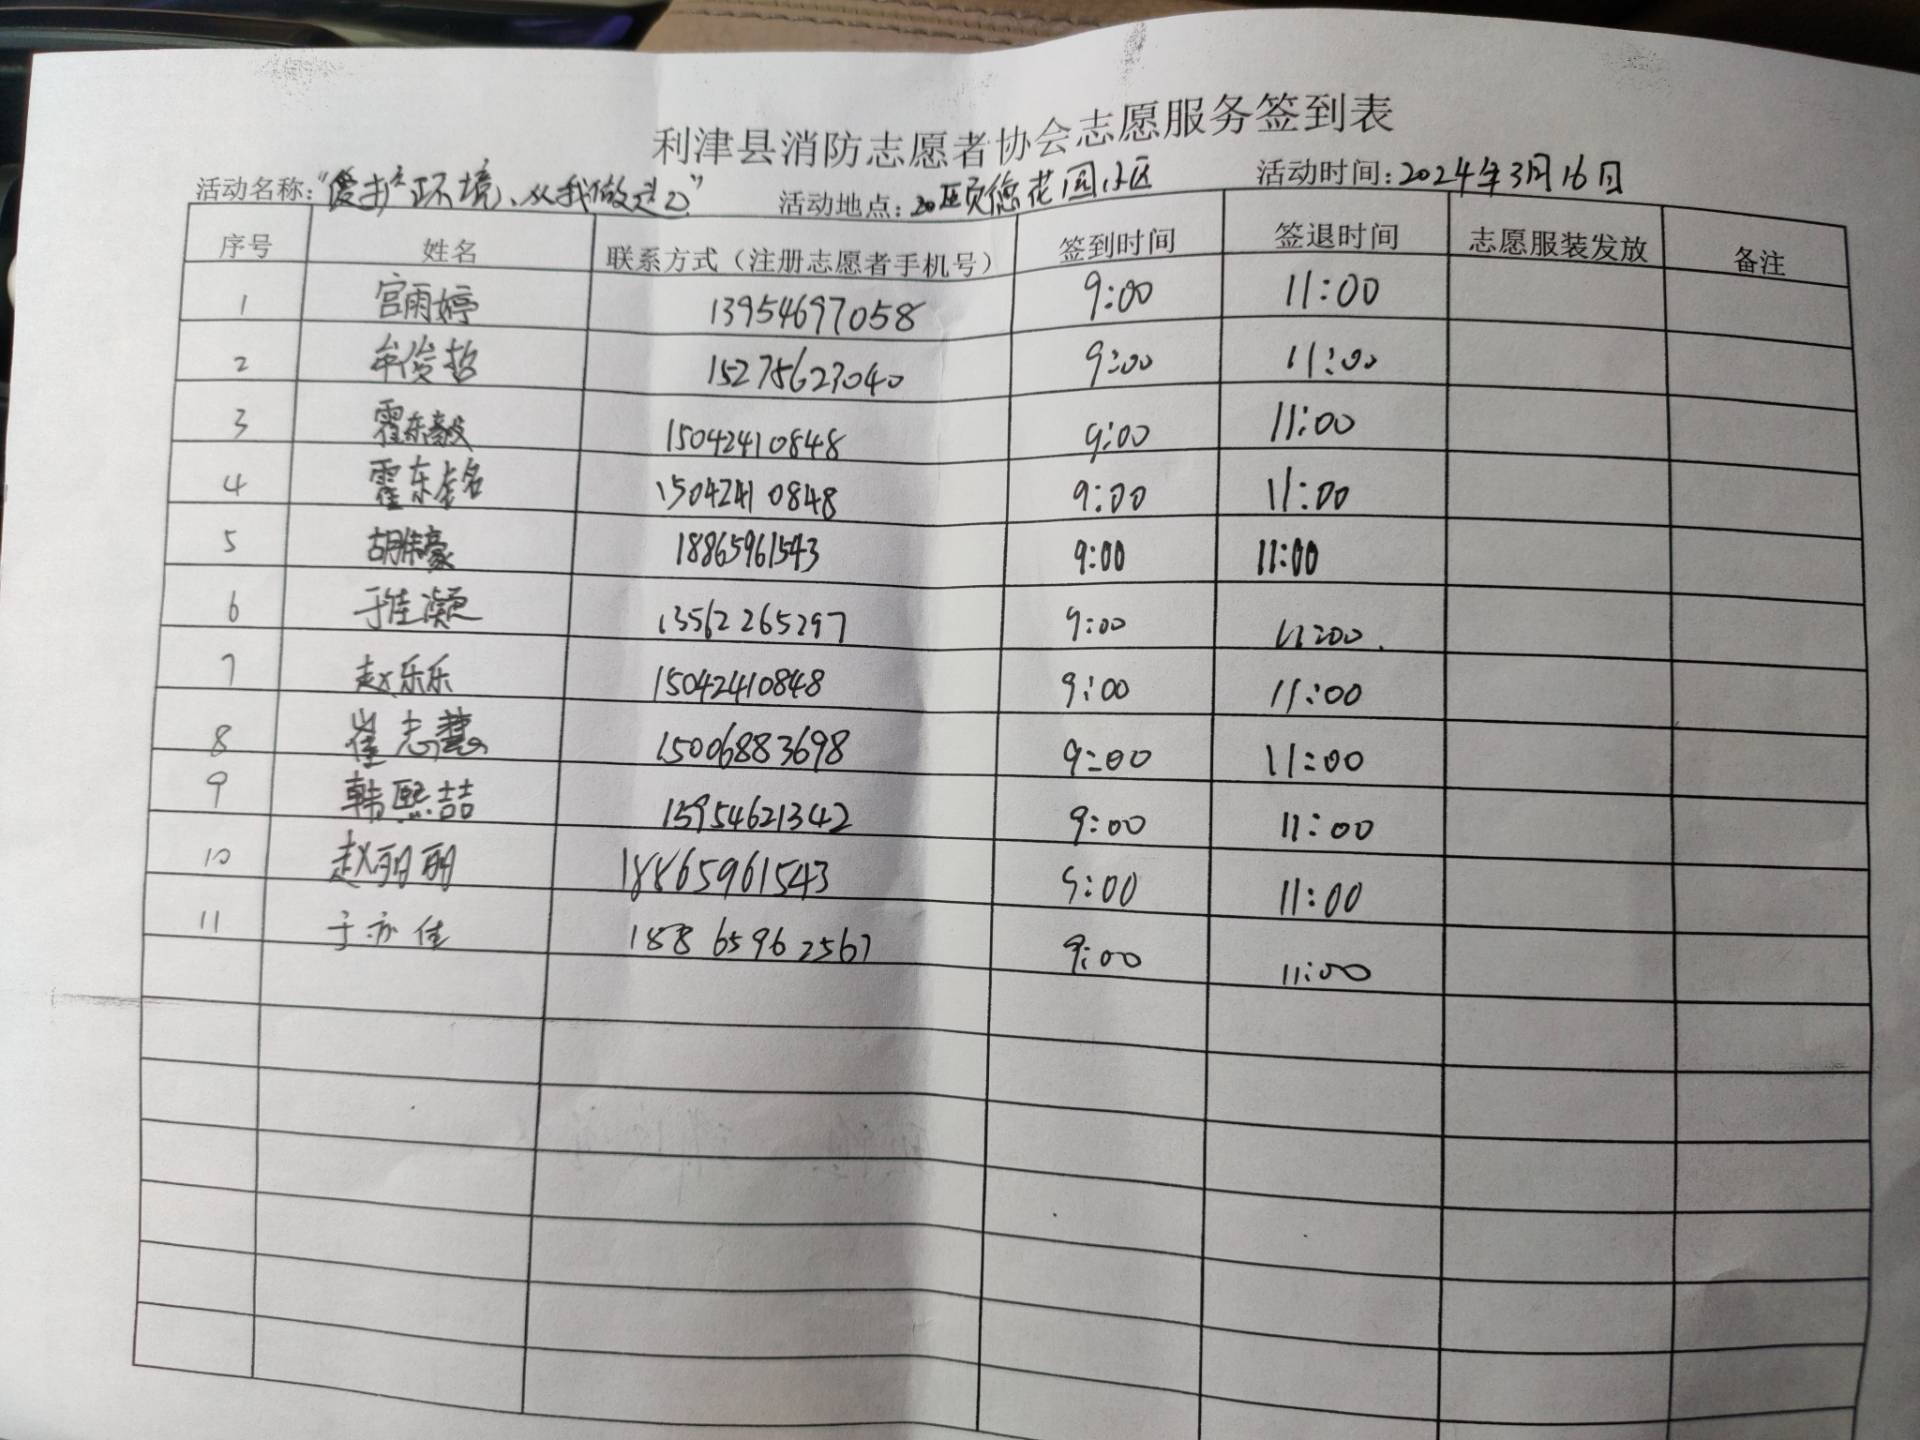 利津县消防志愿者协会志愿服务签到表
活动名称："爱护环境、从我做起" 活动地点：颐德花园小区 活动时间：2024年3月16日
序号 姓名 联系方式（注册志愿者手机号） 签到时间 签退时间 志愿服装发放 备注
1 宫雨婷 13954697058 9:00 11:00
2 牟俊哲 15275623040 9:00 11:00
3 霍东毅 15042410848 9:00 11:00
4 霍东 15042410848 9:00 11:00
5 胡豪 18865961543 9:00 11:00
6 于佳灏 13562265297 9:00 11:00
7 赵乐乐 15042410848 9:00 11:00
8 崔志慧 15006883698 9:00 11:00
9 韩熙喆 15954621342 9:00 11:00
10 赵丽丽 18865961543 9:00 11:00
11 于亦佳 18865962567 9:00 11:00